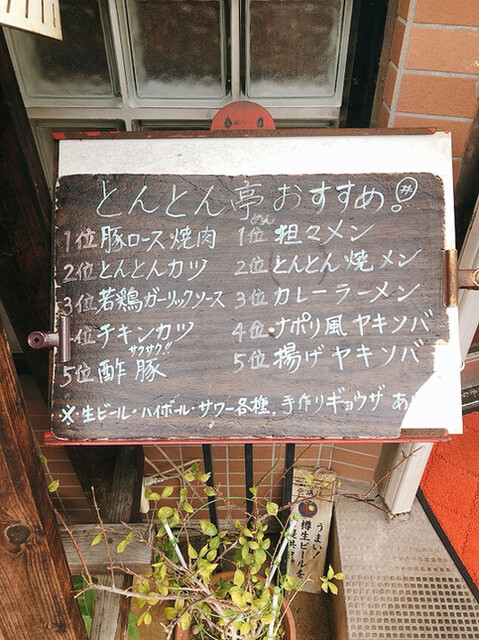 とんとん亭おすすめ!
1位 豚ロース焼肉
2位 とんとんカツ
3位 若鶏ガーリックソース
位 チキンカツ
サクサク!!
5位 酢豚
めん
1位 担々メン
2位 とんとん焼メン
3位 カレーラーメン
4位 ナポリ風ヤキソバ
5位 揚げヤキソバ
※生ビール・ハイボール・サワー各種、手作りギョウザ あ
うまい!
樽生ビールを